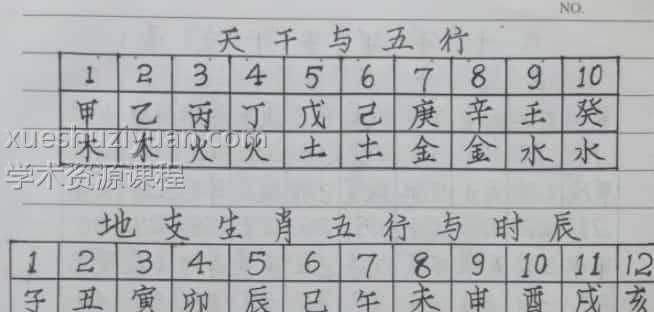 NO.
天干与五行
1 2 3 4 5 6 7 8 9 10
甲 乙 丙 丁 戊 己 庚 辛 壬 癸
木 木 火 火 土 土 金 金 水 水
xueshuziyuan.com
学术资源课程
地支生肖五行与时辰
1 2 3 4 5 6 7 8 9 10 11 12
子 丑 寅 卯 辰 巳 午 未 申 酉 戌 亥